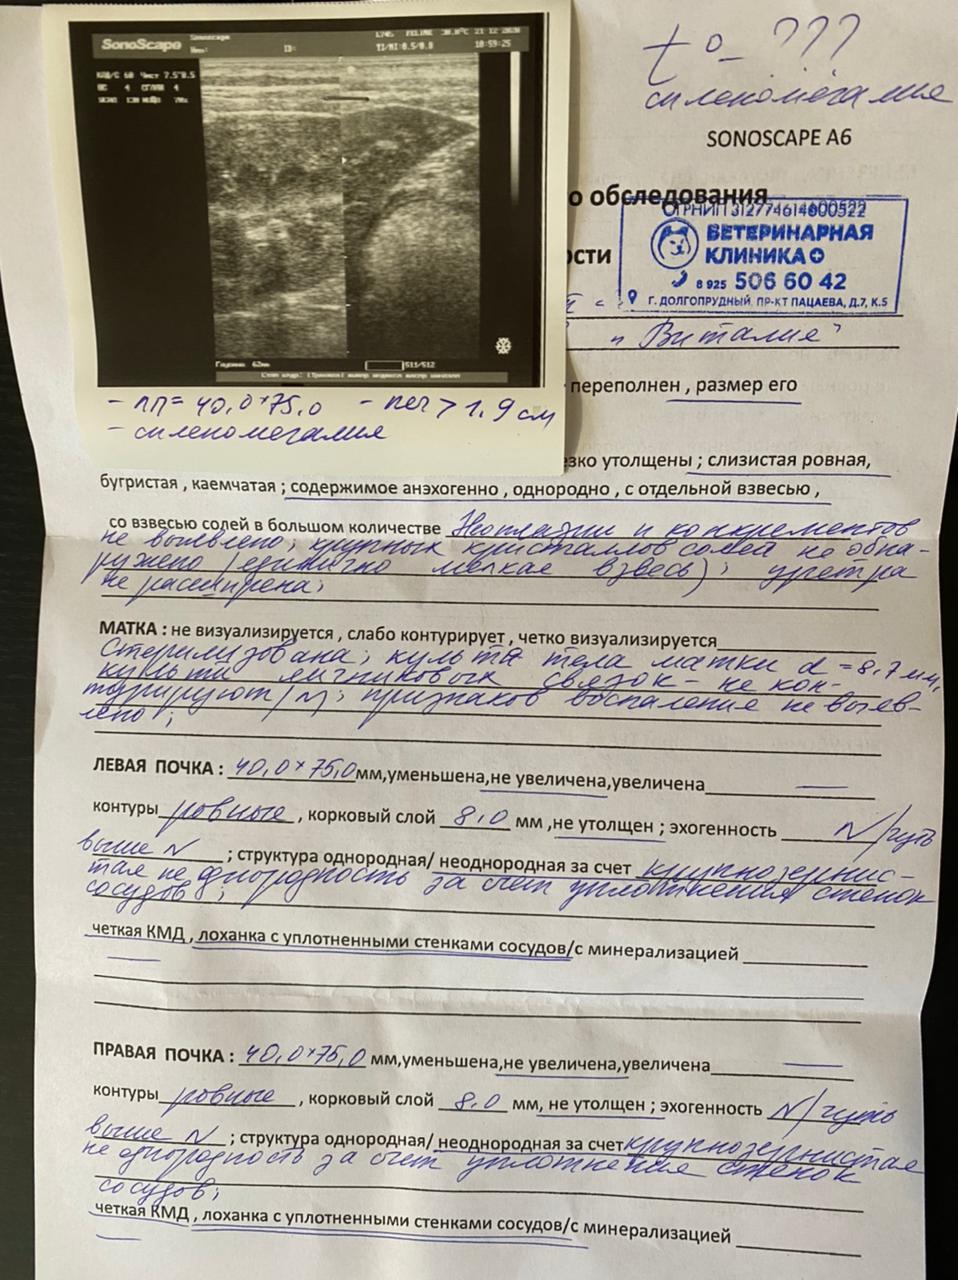 SonoScape
FELINE
21 12
10:59:25
62мм
511/512
- ЛП= 40,0×75,0 - печ > 1,9 см
- спленомегалия
t° - ???
спленомегалия
SONOSCAPE A6
о обследования
ости
ОГРНИП 312774614600522
ВЕТЕРИНАРНАЯ
КЛИНИКА
8 925 506 60 42
Г. ДОЛГОПРУДНЫЙ, ПР-КТ ПАЦАЕВА, Д.7, К.5
"Виталия"
переполнен , размер его
езко утолщены ; слизистая ровная,
бугристая , каемчатая ; содержимое анэхогенно , однородно , с отдельной взвесью ,
со взвесью солей в большом количестве Неоплазии и конкрементов
не выявлено; крупных кристаллов солей не обна-
ружено (единично мелкая взвесь); уретра
не расширена;
МАТКА : не визуализируется , слабо контурирует , четко визуализируется
Стерилизована; культя тела матки d = 8,7 мм,
культя яичниковых связок - не кон-
турируют /N; признаков воспаления не выяв-
лено;
ЛЕВАЯ ПОЧКА : 40,0×75,0 мм,уменьшена,не увеличена,увеличена
контуры ровные , корковый слой 8,0 мм ,не утолщен ; эхогенность N/чуть
выше N ; структура однородная/ неоднородная за счет крупнозернис-
тая неоднородность за счет уплотнения стенок
сосудов;
четкая КМД , лоханка с уплотненными стенками сосудов/с минерализацией
ПРАВАЯ ПОЧКА : 40,0×75,0 мм,уменьшена,не увеличена,увеличена
контуры ровные , корковый слой 8,0 мм, не утолщен ; эхогенность N/чуть
выше N ; структура однородная/ неоднородная за счет крупнозернистая
неоднородность за счет уплотнения стенок
сосудов;
четкая КМД , лоханка с уплотненными стенками сосудов/с минерализацией